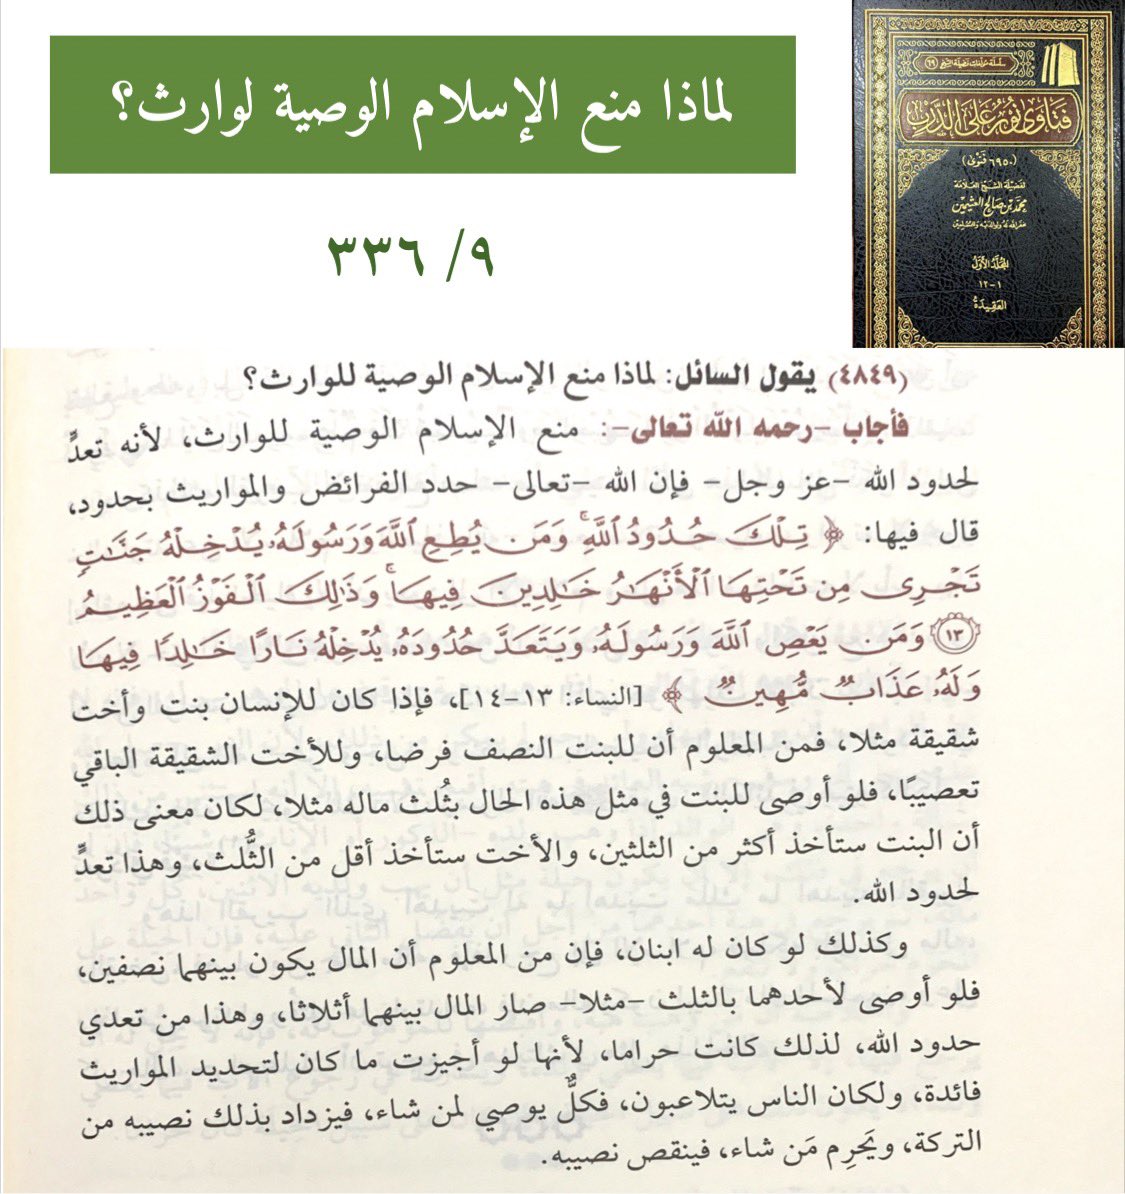 لماذا منع الإسلام الوصية لوارث؟
٩/ ٣٣٦
سلسلة مؤلفات فضيلة الشيخ (٦٩)
فتاوى نور على الدرب
(٦٩٥٠ فتوى)
لفضيلة الشيخ العلامة
محمد بن صالح العثيمين
غفر الله له ولوالديه وللمسلمين
المجلد الأول
١-١٢
العقيدة
(٤٨٤٩) يقول السائل: لماذا منع الإسلام الوصية للوارث؟
فأجاب -رحمه الله تعالى-: منع الإسلام الوصية للوارث، لأنه تعدٍّ
لحدود الله -عز وجل- فإن الله -تعالى- حدد الفرائض والمواريث بحدود،
قال فيها: ﴿ تِلْكَ حُدُودُ ٱللَّهِ ۚ وَمَن يُطِعِ ٱللَّهَ وَرَسُولَهُۥ يُدْخِلْهُ جَنَّٰتٍ
تَجْرِى مِن تَحْتِهَا ٱلْأَنْهَٰرُ خَٰلِدِينَ فِيهَا ۚ وَذَٰلِكَ ٱلْفَوْزُ ٱلْعَظِيمُ
(١٣) وَمَن يَعْصِ ٱللَّهَ وَرَسُولَهُۥ وَيَتَعَدَّ حُدُودَهُۥ يُدْخِلْهُ نَارًا خَٰلِدًا فِيهَا
وَلَهُۥ عَذَابٌ مُّهِينٌ ﴾ [النساء: ١٣-١٤]، فإذا كان للإنسان بنت وأخت
شقيقة مثلا، فمن المعلوم أن للبنت النصف فرضا، وللأخت الشقيقة الباقي
تعصيبًا، فلو أوصى للبنت في مثل هذه الحال بثُلث ماله مثلا، لكان معنى ذلك
أن البنت ستأخذ أكثر من الثلثين، والأخت ستأخذ أقل من الثُّلث، وهذا تعدٍّ
لحدود الله.
وكذلك لو كان له ابنان، فإن من المعلوم أن المال يكون بينهما نصفين،
فلو أوصى لأحدهما بالثلث -مثلا- صار المال بينهما أثلاثا، وهذا من تعدي
حدود الله، لذلك كانت حراما، لأنها لو أجيزت ما كان لتحديد المواريث
فائدة، ولكان الناس يتلاعبون، فكلٌّ يوصي لمن شاء، فيزداد بذلك نصيبه من
التركة، ويَحرِم مَن شاء، فينقص نصيبه.